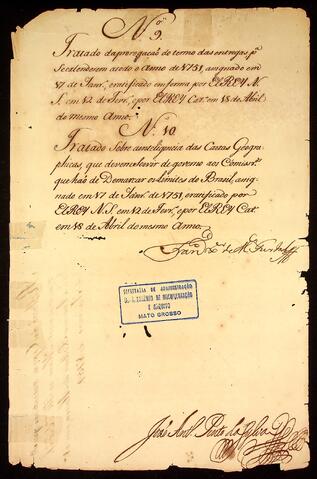 Nº 9.
Tratado da prorogação do termo das entregas pª
Seextenderem atodo o Anno de 1751, asignado em
17 de Janrº, eratificado em forma por ElREY N.
S. em 12 de Fevrº, e por ElREY Catº em 18 de Abril
do mesmo Anno.
Nº 10
Tratado Sobre aintelligencia das Cartas Geogra-
phicas, que devem servir de governo aos Comissrºs
que hão de Demarcar os Limites do Brasil, asig-
nado em 17 de Janrº de 1751, eratificado por
ElREY N. S. em 12 de Fevrº, e por ElREY Catº
em 18 de Abril do mesmo Anno.
de
SECRETARIA DE ADMINISTRAÇÃO
E ARQUIVO
MATO GROSSO
José Pinto da Silva